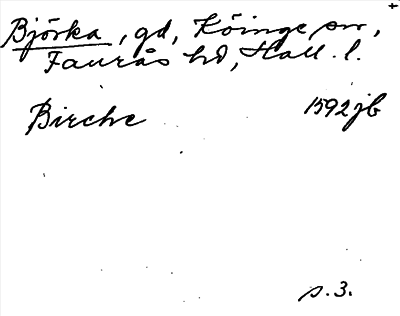 Björka, gd, Köinge sn,
Faurås hd, Hall. l.
Birche 1592 jb
s. 3.